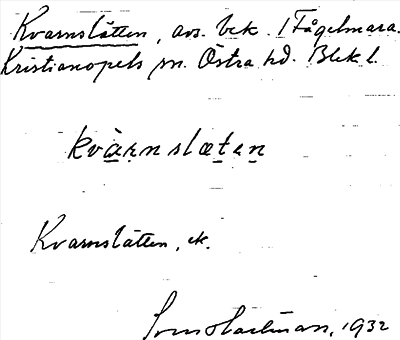 Kvarnslätten, avs. bek. i Fågelmara.
Kristianopels sn. Östra hd. Blek l.
kvarnslætan
Kvarnslätten, ek.
Sven Hartman, 1932